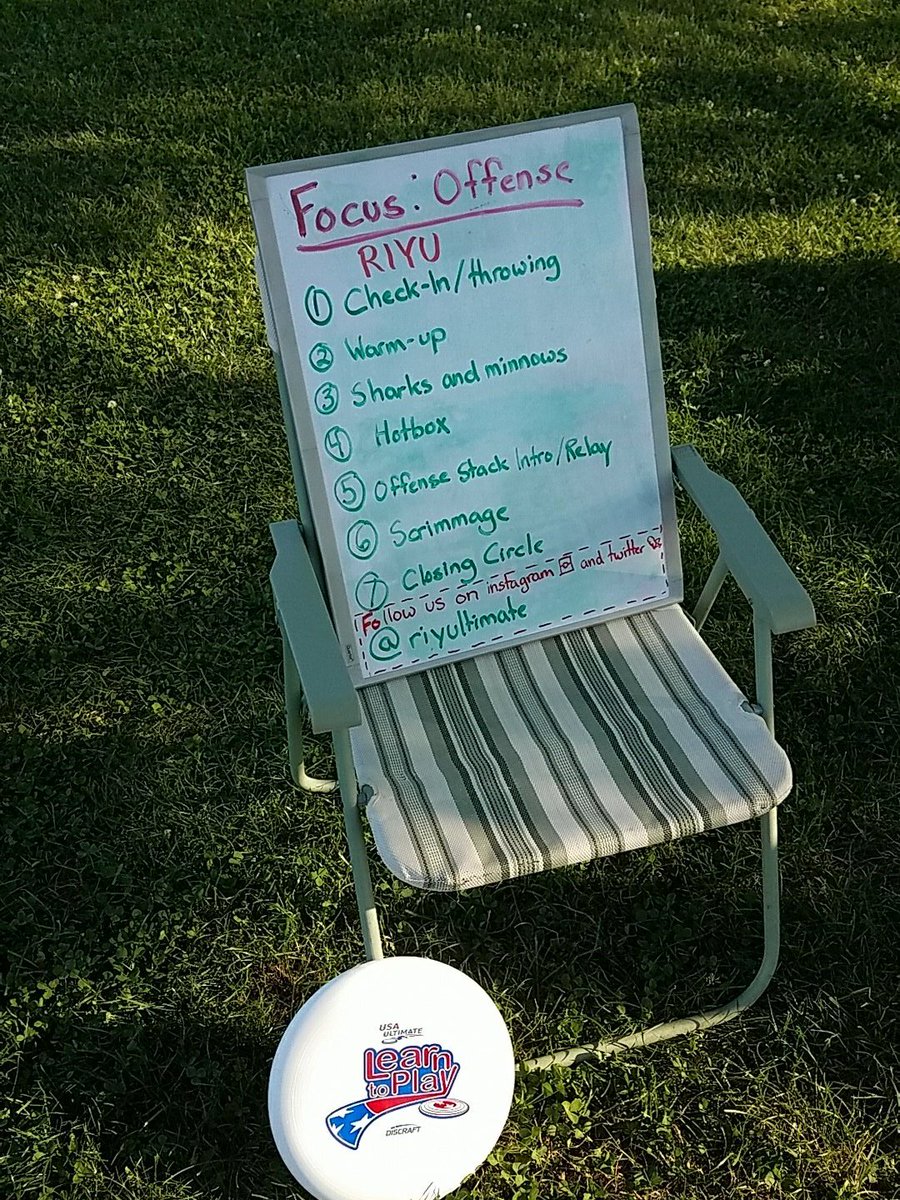 Focus: Offense
RIYU
1 Check-In/throwing
2 Warm-up
3 Sharks and minnows
4 Hotbox
5 Offense Stack Intro/Relay
6 Scrimmage
7 Closing Circle
Follow us on instagram and twitter
@riyultimate
USA
ULTIMATE
Learn
to Play
DISCRAFT